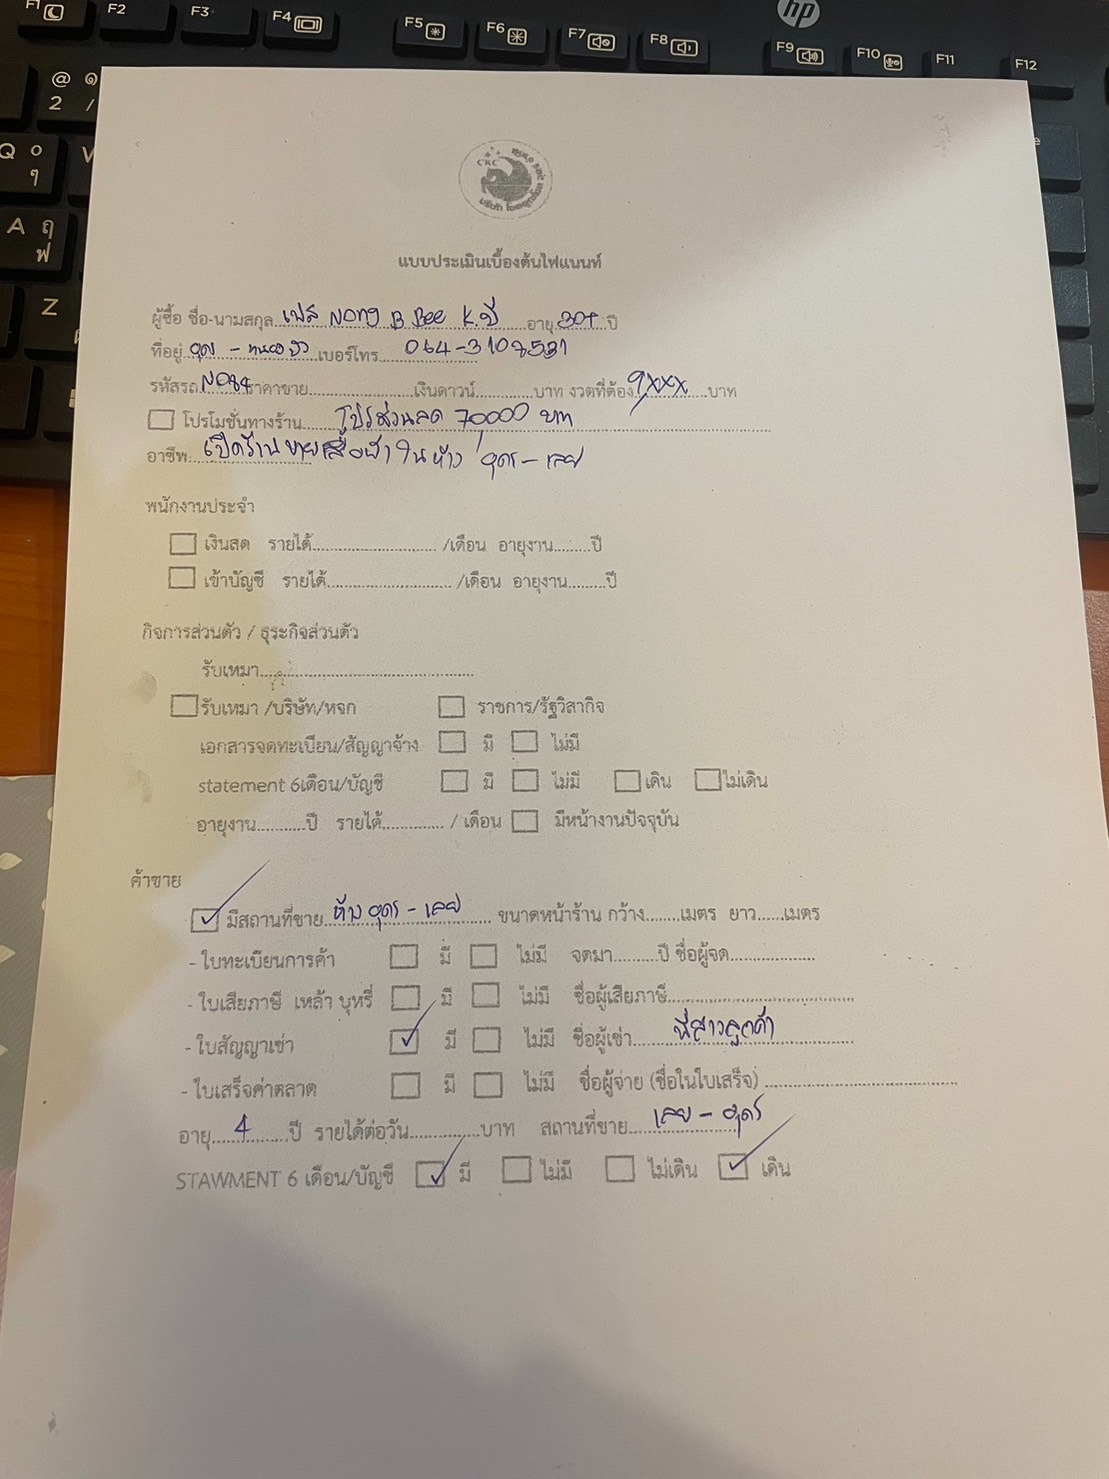 F1 F2 F3 F4 F5 F6 F7 F8 F9 F10 F11 F12
hp
@ 2 /
Q
ๆ
A ฤ
ฟ
Z
CKC
แบบประเมินเบื้องต้นไฟแนนท์
ผู้ซื้อ ชื่อ-นามสกุล เฟส Nong B Bee K.บี อายุ 30+ ปี
ที่อยู่ อุดร - หนองบัว เบอร์โทร 064-3107531
รหัสรถ N084 ราคาขาย เงินดาวน์ บาท งวดที่ต้อง 9xxx บาท
โปรโมชั่นทางร้าน โปรส่วนลด 70000 บาท
อาชีพ เปิดร้านขายเสื้อผ้าในห้าง อุดร - เลย
พนักงานประจำ
เงินสด รายได้ /เดือน อายุงาน ปี
เข้าบัญชี รายได้ /เดือน อายุงาน ปี
กิจการส่วนตัว / ธุระกิจส่วนตัว
รับเหมา
รับเหมา /บริษัท/หจก ราชการ/รัฐวิสากิจ
เอกสารจดทะเบียน/สัญญาจ้าง มี ไม่มี
statement 6เดือน/บัญชี มี ไม่มี เดิน ไม่เดิน
อายุงาน ปี รายได้ / เดือน มีหน้างานปัจจุบัน
ค้าขาย
มีสถานที่ขาย ห้าง อุดร - เลย ขนาดหน้าร้าน กว้าง เมตร ยาว เมตร
- ใบทะเบียนการค้า มี ไม่มี จดมา ปี ชื่อผู้จด
- ใบเสียภาษี เหล้า บุหรี่ มี ไม่มี ชื่อผู้เสียภาษี
- ใบสัญญาเช่า มี ไม่มี ชื่อผู้เช่า พี่สาวลูกค้า
- ใบเสร็จค่าตลาด มี ไม่มี ชื่อผู้จ่าย (ชื่อในใบเสร็จ)
อายุ 4 ปี รายได้ต่อวัน บาท สถานที่ขาย เลย - อุดร
STAWMENT 6 เดือน/บัญชี มี ไม่มี ไม่เดิน เดิน